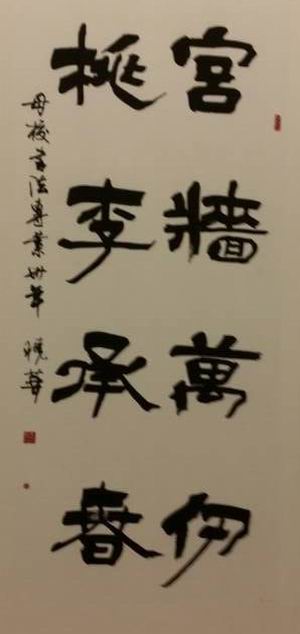 宮牆萬仞
桃李承春
母校書法專業卅年 曉華